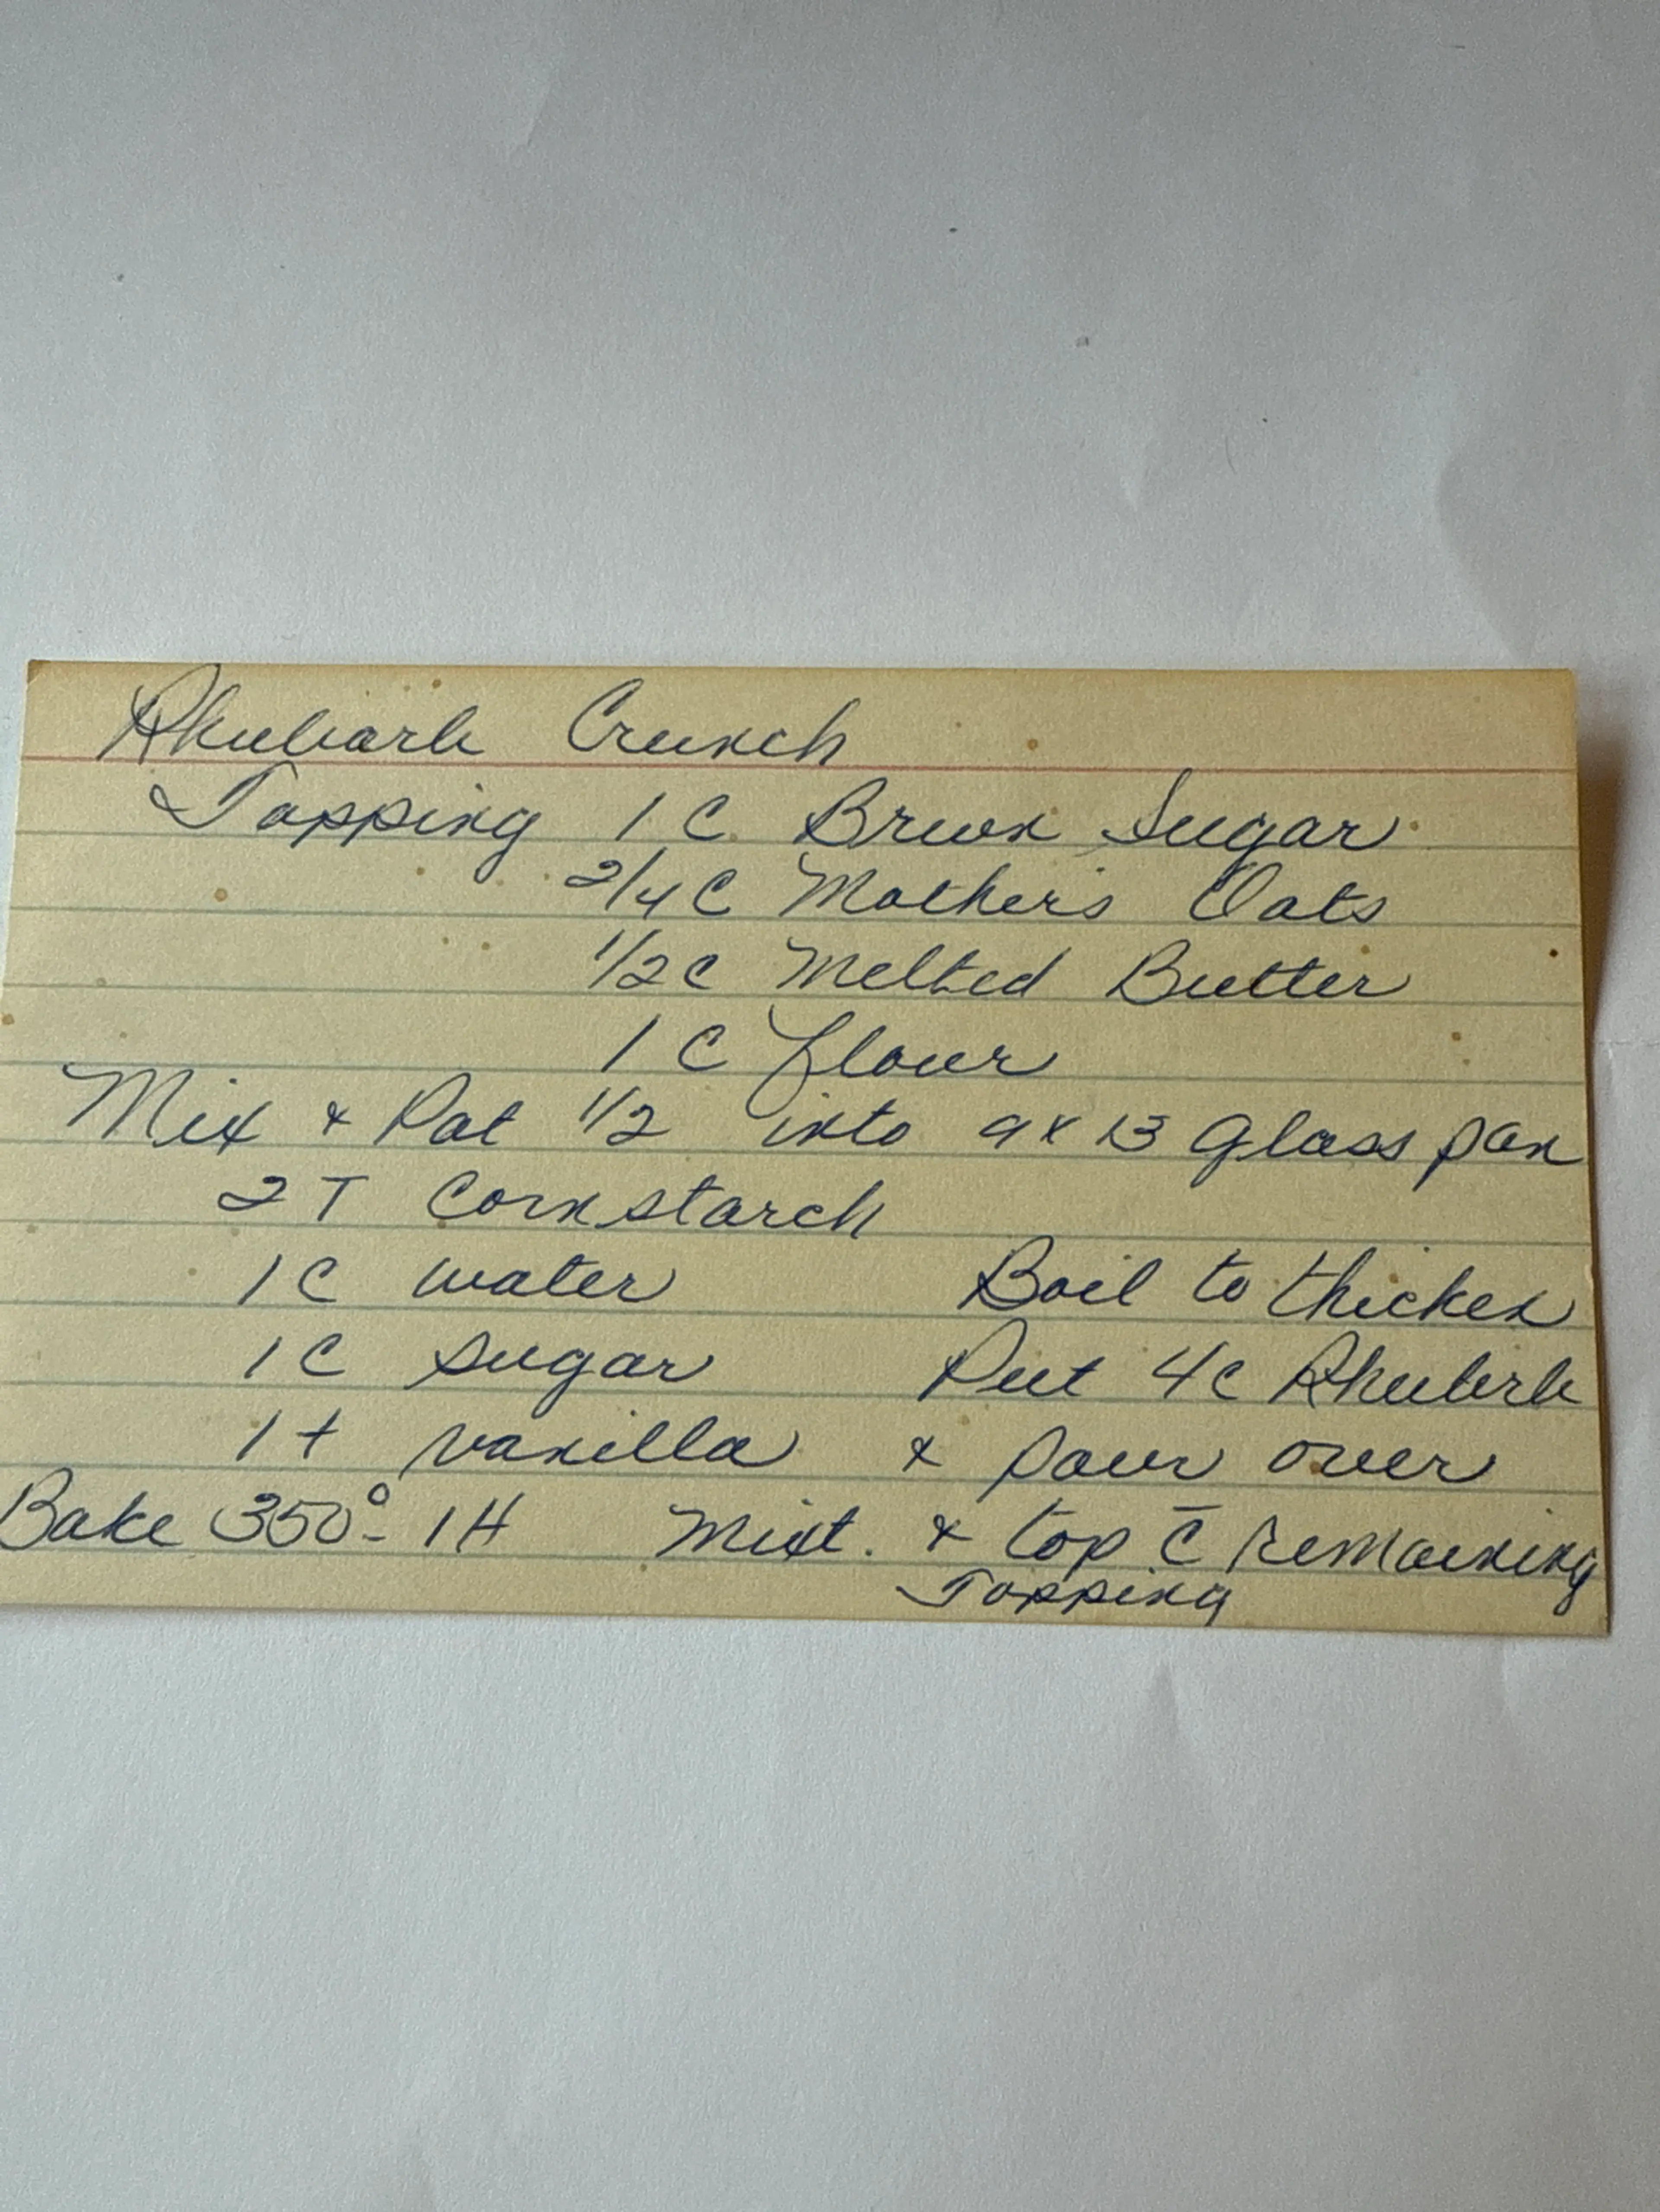 Rhubarb Crunch
Topping 1 C Brwon Sugar
2/4 C Mothers Oats
1/2 C Melted Butter
1 C flour
Mix + Pat 1/2 into 9x13 Glass pan
2 T Cornstarch
1 C water Boil to thicken
1 C sugar Put 4c Rhubrb
1 t vanilla + pour over
Bake 350° - 1 H Mixt. + top c̄ remaining
Topping